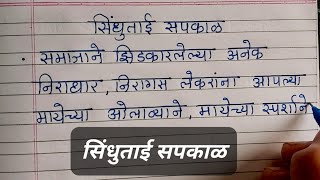 सिंधुताई सपकाळ
• समाजाने झिडकारलेल्या अनेक
निराधार, निरागस लेकरांना आपल्या
मायेच्या ओलाव्याने, मायेच्या स्पर्शाने
सिंधुताई सपकाळ